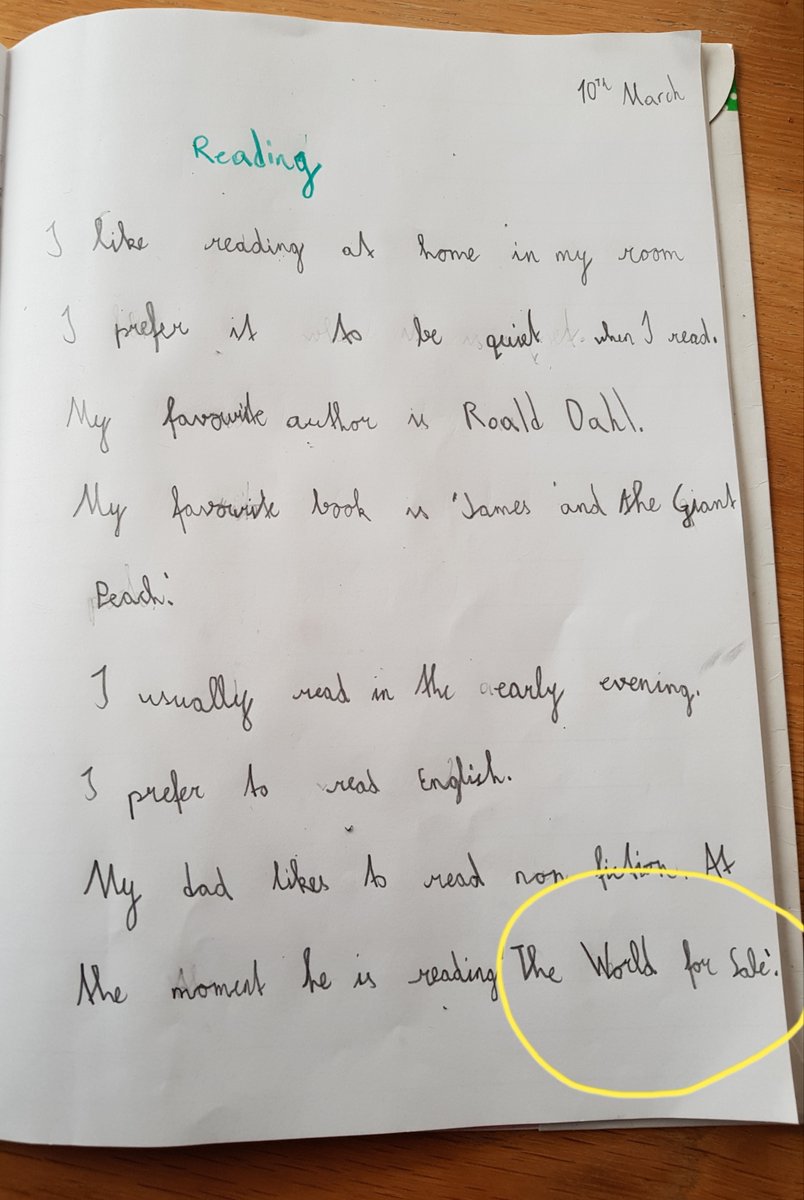 10TH March
Reading
I like reading at home in my room
I prefer it to be quiet when I read.
My favourite author is Roald Dahl.
My favourite book is 'James and the Giant
Peach'.
I usually read in the early evening.
I prefer to read English.
My dad likes to read non fiction. At
the moment he is reading 'The World for Sale'.